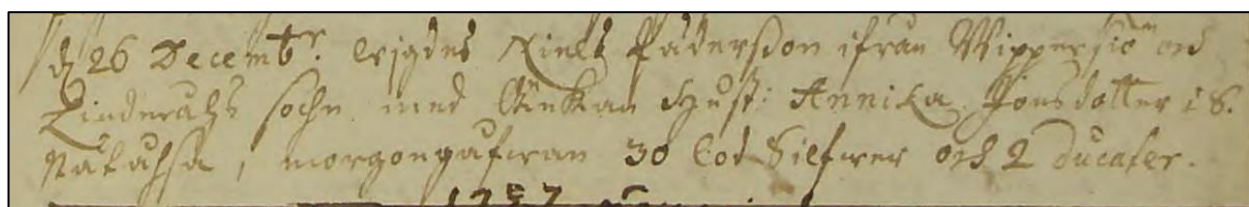 d 26 Decembr. wigdes Niels Pädersson ifrån Wippersiö och
Linderahs sochn med Änckan Hust: Annika Jonsdotter i S.
morgongåfwan 30 lod Silfwer och 2 ducater.
1757